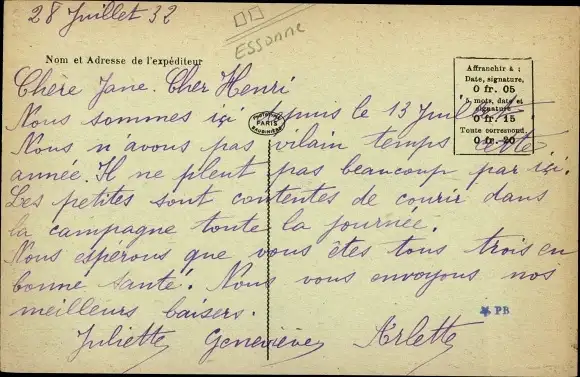 28 Juillet 32
ESSONNE
Nom et Adresse de l'expéditeur
Affranchir à :
Date, signature,
0 fr. 05
5 mots, date et
signature
0 fr. 15
Toute correspond.
0 fr. 20
Chère Jane. Cher Henri
Nous sommes içi depuis le 13 Juillet
PARIS
Nous n'avons pas vilain temps cette
année. Il ne pleut pas beaucoup par içi.
Les petites sont contentes de courir dans
la campagne toute la journée.
Nous espérons que vous êtes tous trois en
bonne santé. Nous vous envoyons nos
meilleurs baisers.
Juliette Geneviève Arlette
PB